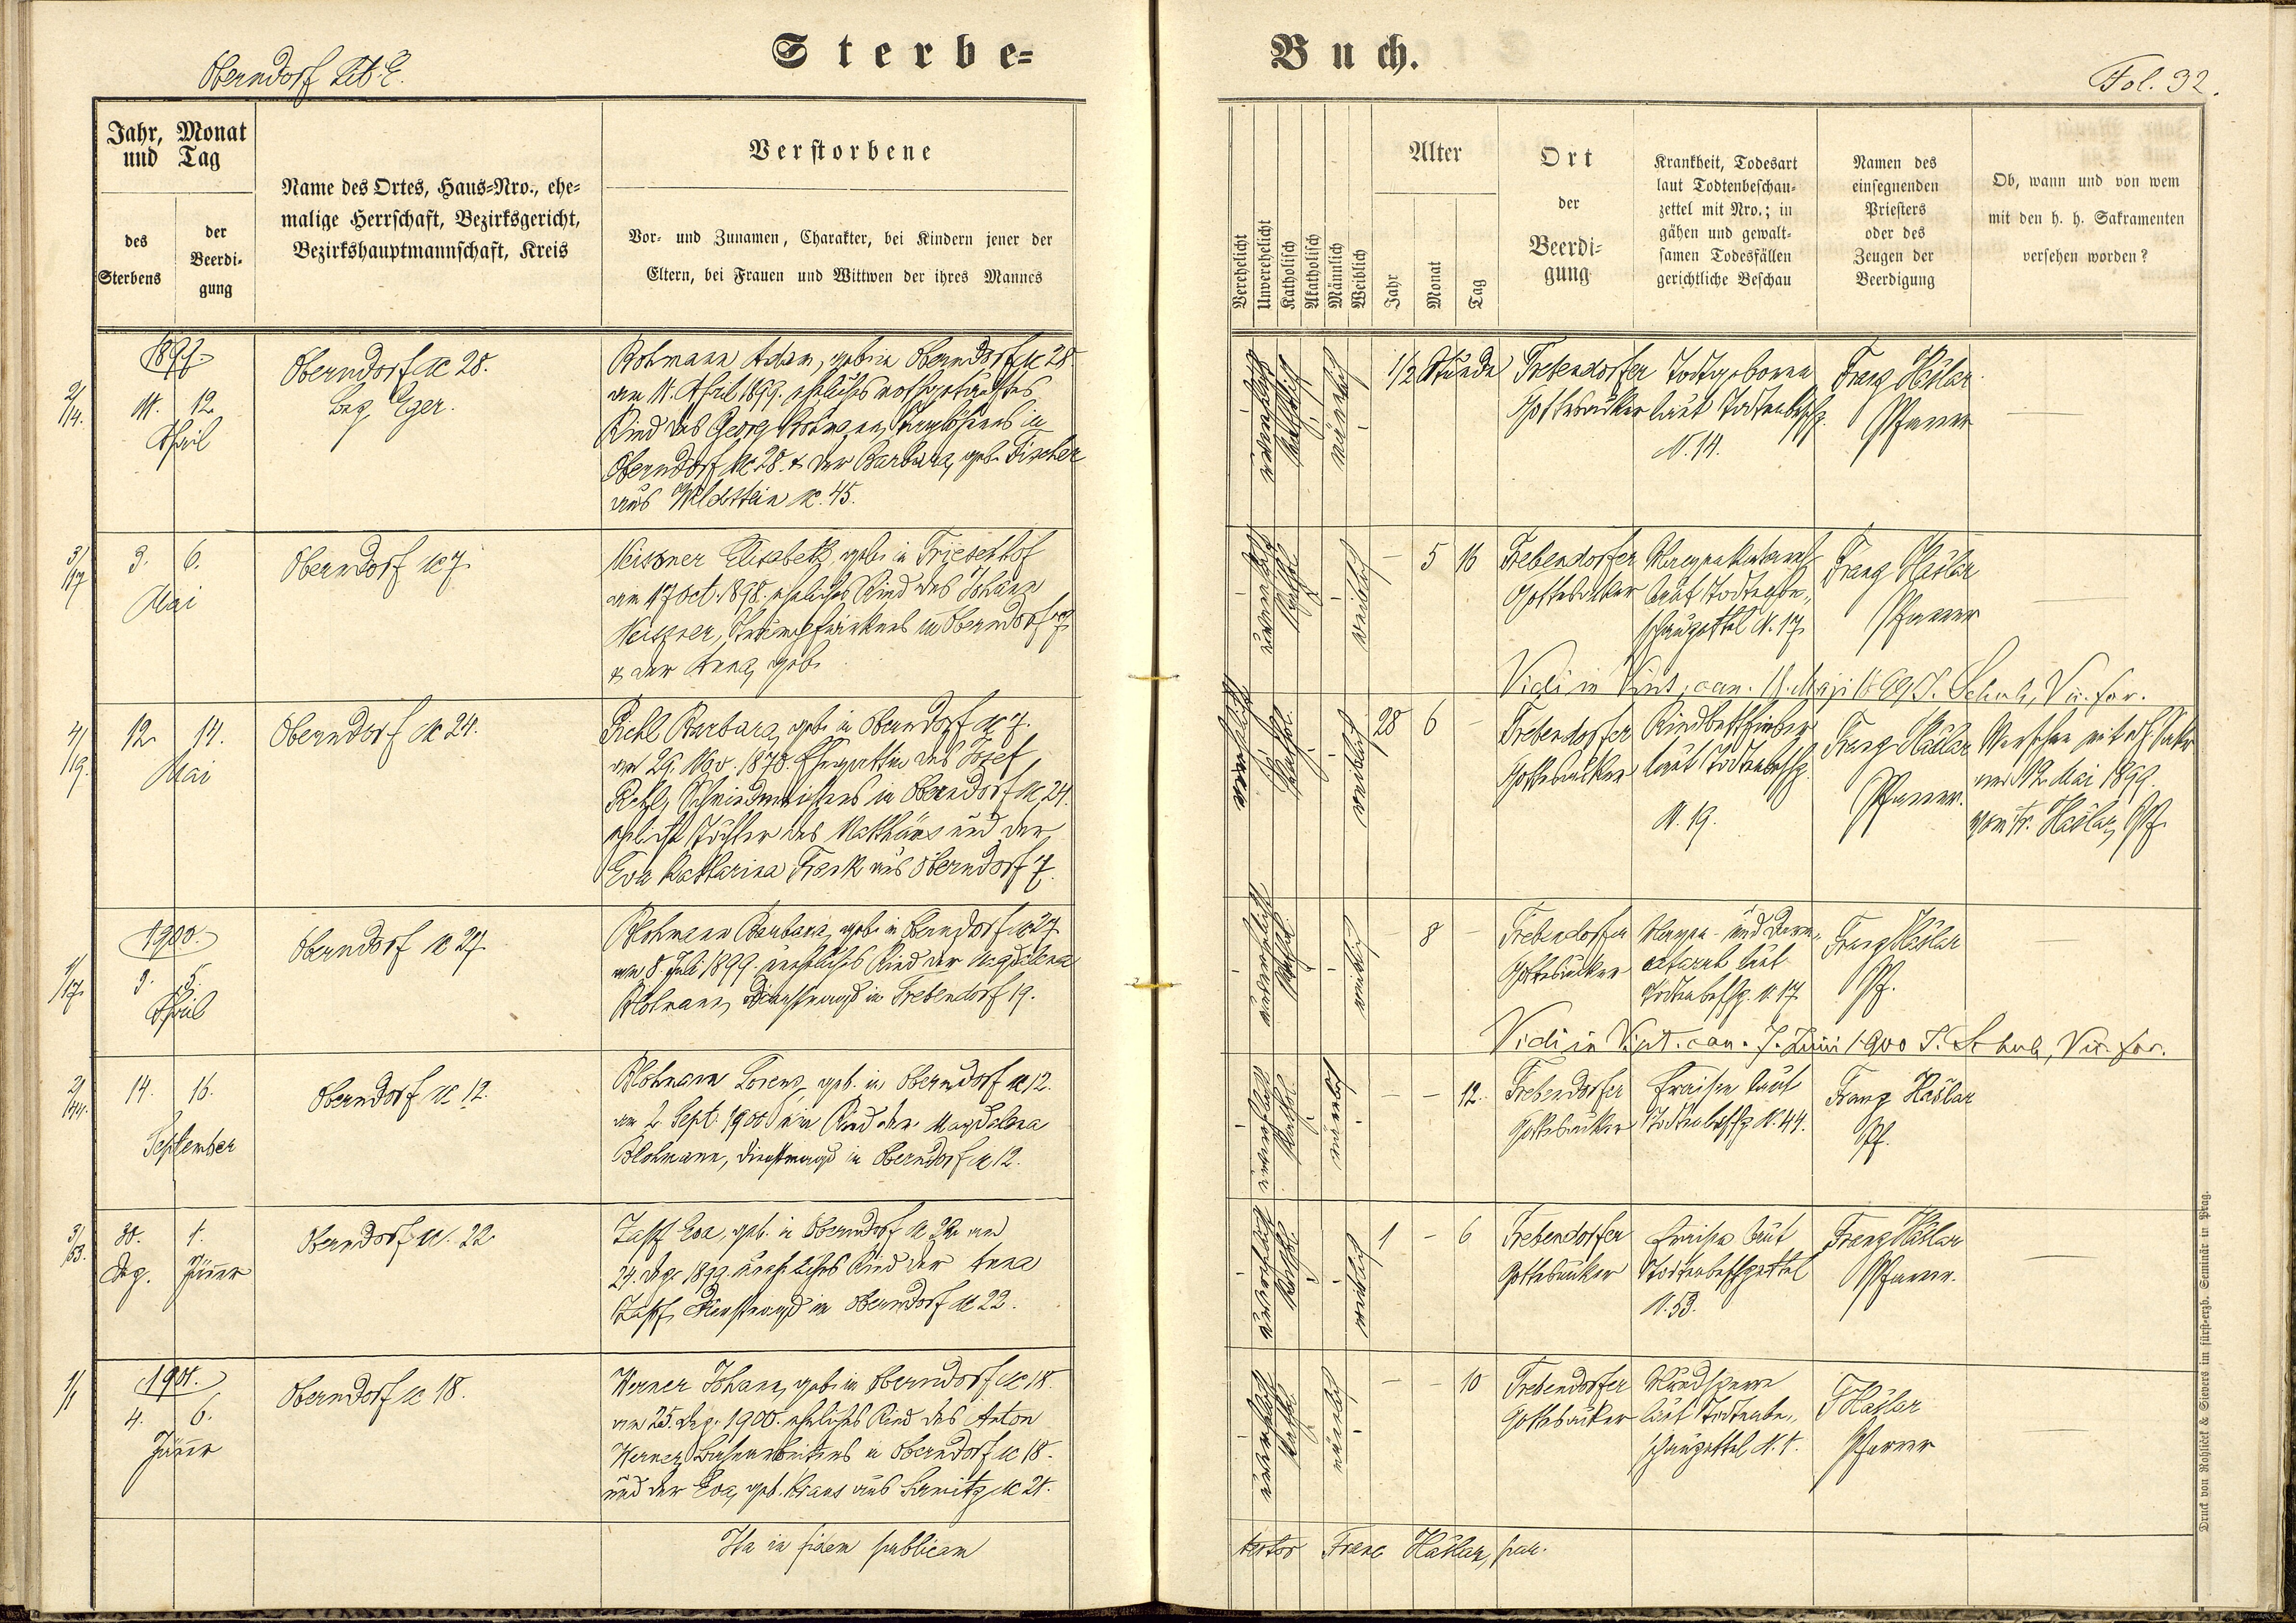 Sterbe=
Buch.
Oberndorf Lit. E.
Fol. 32.
Jahr, Monat
und Tag
des
Sterbens
der
Beerdi-
gung
Name des Ortes, Haus=Nro., ehe=
malige Herrschaft, Bezirksgericht,
Bezirkshauptmannschaft, Kreis
Verstorbene
Vor- und Zunamen, Charakter, bei Kindern jener der
Eltern, bei Frauen und Wittwen der ihres Mannes
Verehelicht
Unverehelicht
Katholisch
Akatholisch
Männlich
Weiblich
Alter
Jahr
Monat
Tag
Ort
der
Beerdi-
gung
Krankheit, Todesart
laut Todtenbeschau-
zettel mit Nro.; in
gähen und gewalt-
samen Todesfällen
gerichtliche Beschau
Namen des
einsegnenden
Priesters
oder des
Zeugen der
Beerdigung
Ob, wann und von wem
mit den h. h. Sakramenten
versehen worden?
1899.
2/14.
11. 12.
April
Oberndorf N 28.
Bez. Eger.
Adam, geb. in Oberndorf N 28
am 11. April 1899. eheliches nothgetauftes
Kind des Georg
Oberndorf N 28. & der Barbara, geb. Fischer
aus Wildstein N. 45.
unverehelicht
katholisch
männlich
1/2 Stunde
Trebendorfer
Gottesacker
Todtgeboren
laut Todtenbeschz.
N. 14.
Franz Häßlar
Pfarrer
3/17
3. 6.
Mai
Oberndorf N 7.
Meissner Elisabeth, geb. in Trieschhof
am 17 Oct. 1898. eheliches Kind des Johann
Meissner, in Oberndorf 7
& der Anna, geb.
unverehelicht
kathol.
weiblich
– 5 16
Trebendorfer
Gottesacker
laut Todtenbe-
schauzettel N. 17.
Franz Häßlar
Pfarrer
Vidi in Visit. can. Maji 1899 Vic. for.
4/19.
12. 14.
Mai
Oberndorf N 24.
Barbara, geb. in Oberndorf N 7.
am 29. Nov. 1870. Ehegattin des Josef
Schmiedmeisters in Oberndorf N 24.
eheliche Tochter des Matthäus und der
Eva Katharina Frank aus Oberndorf 7.
verehelicht
kathol.
weiblich
28 6 –
Trebendorfer
Gottesacker
Kindbettfieber
laut Todtenbeschz.
N. 19.
Franz Häßlar
Pfarrer.
Versehen mit h. Sakr.
am 12. Mai 1899.
vom Fr. Häßlar, Pf.
1900.
1/17.
3. 5.
April
Oberndorf N 27.
Plohmann Barbara, geb. in Oberndorf N 27.
am 8. Juli 1899. uneheliches Kind der Magdalena
Plohmann, Dienstmagd in Trebendorf 19.
unverehelicht
kathol.
weiblich
– 8 –
Trebendorfer
Gottesacker
Magen- und Darm-
catarrh laut
Todtenbeschz. N. 17.
Franz Häßlar
Pf.
Vidi in Visit. can. 7. Juni 1900 Vic. for.
2/44.
14. 16.
September
Oberndorf N 12.
Plohmann Lorenz, geb. in Oberndorf N 12.
am 2. Sept. 1900 Kind der Magdalena
Plohmann, Dienstmagd in Oberndorf N 12.
unverehelicht
kathol.
männlich
– – 12.
Trebendorfer
Gottesacker
Fraisen laut
Todtenbeschz N. 44.
Franz Häßlar
Pf.
3/53.
30. 1.
Dez. Jänner
Oberndorf N. 22
Zapf Eva, geb. in Oberndorf N 22. am
24. Dez. 1899. uneheliches Kind der Anna
Zapf, Dienstmagd in Oberndorf N 22.
unverehelicht
kathol.
weiblich
1 – 6
Trebendorfer
Gottesacker
Fraisen laut
Todtenbeschzettel
N. 53.
Franz Häßlar
Pfarrer.
1901.
1/1
4. 6.
Jänner
Oberndorf N 18.
Werner Johann, geb. in Oberndorf N 18.
am 25. Dez. 1900. eheliches Kind des Anton
Werner, Bahnarbeiters in Oberndorf N 18.
und der Eva, geb. Kraus aus N 21.
unverehelicht
kathol.
männlich
– – 10
Trebendorfer
Gottesacker
Mundsperre
laut Todtenbe-
schauzettel N. 1.
F Häßlar
Pfarrer
Ita in fidem publicam
testor Franc Häßlar, par.
Druck von Rohliček & Sievers im fürst-erzb. Seminär in Prag.